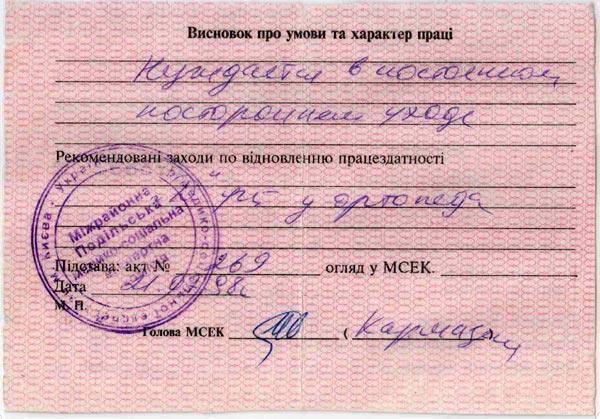 Висновок про умови та характер праці
Нуждается в постоянном
постороннем уходе
Рекомендовані заходи по відновленню працездатності
у ортопеда
Підстава: акт № 269 огляд у МСЕК.
Дата 21.09.98г.
М. П.
Голова МСЕК (
Міжрайонна
Подільська
медико-соціальна
експертна